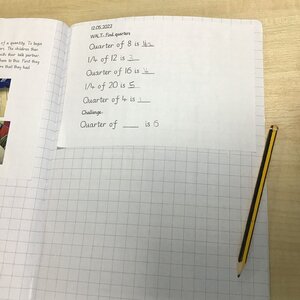 of a quantity. To begin
The children then
with their talk partner
them to this. First they
re that they had.
12.05.2022
W.A.L.T.: Find quarters
Quarter of 8 is
1/4 of 12 is 3
Quarter of 16 is
1/4 of 20 is 5
Quarter of 4 is
Challenge-
Quarter of ____ is 5